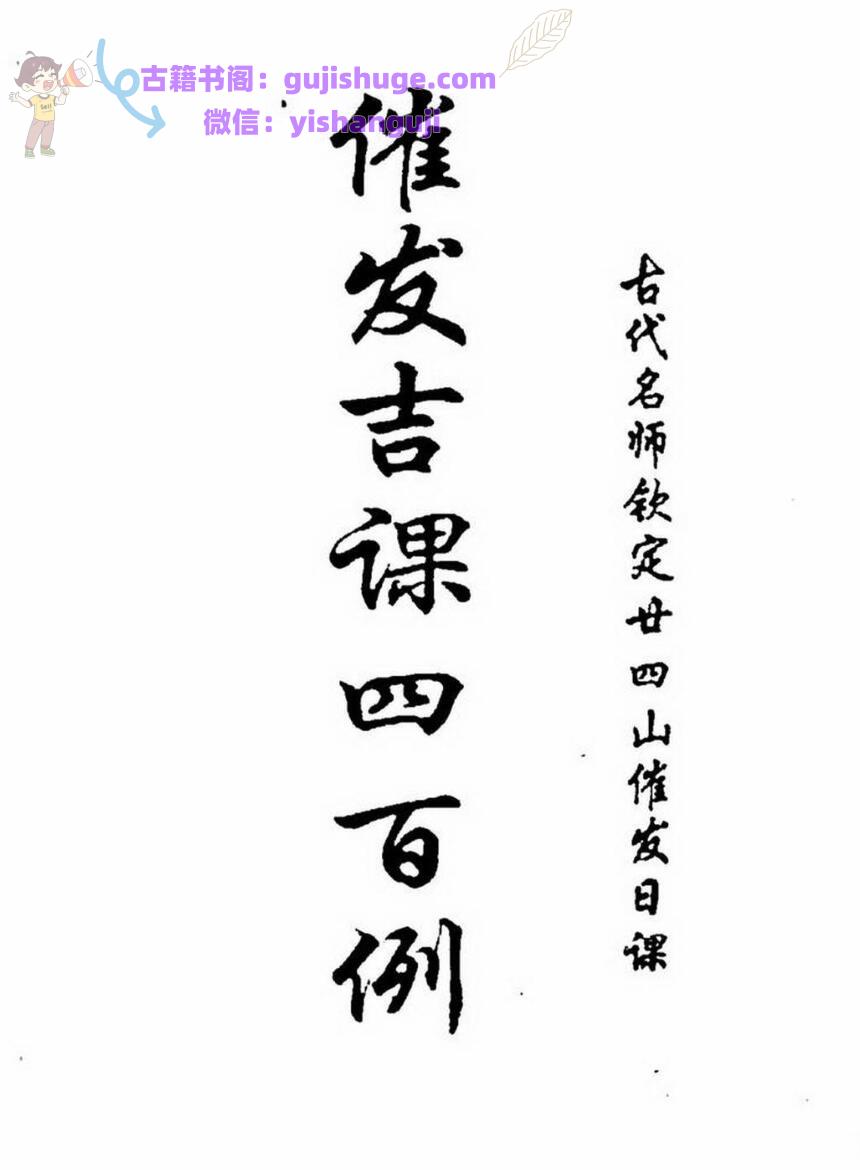 古籍书阁：gujishuge.com
微信：yishanguji
Sell
古代名师钦定廿四山催发日课
催发吉课四百例